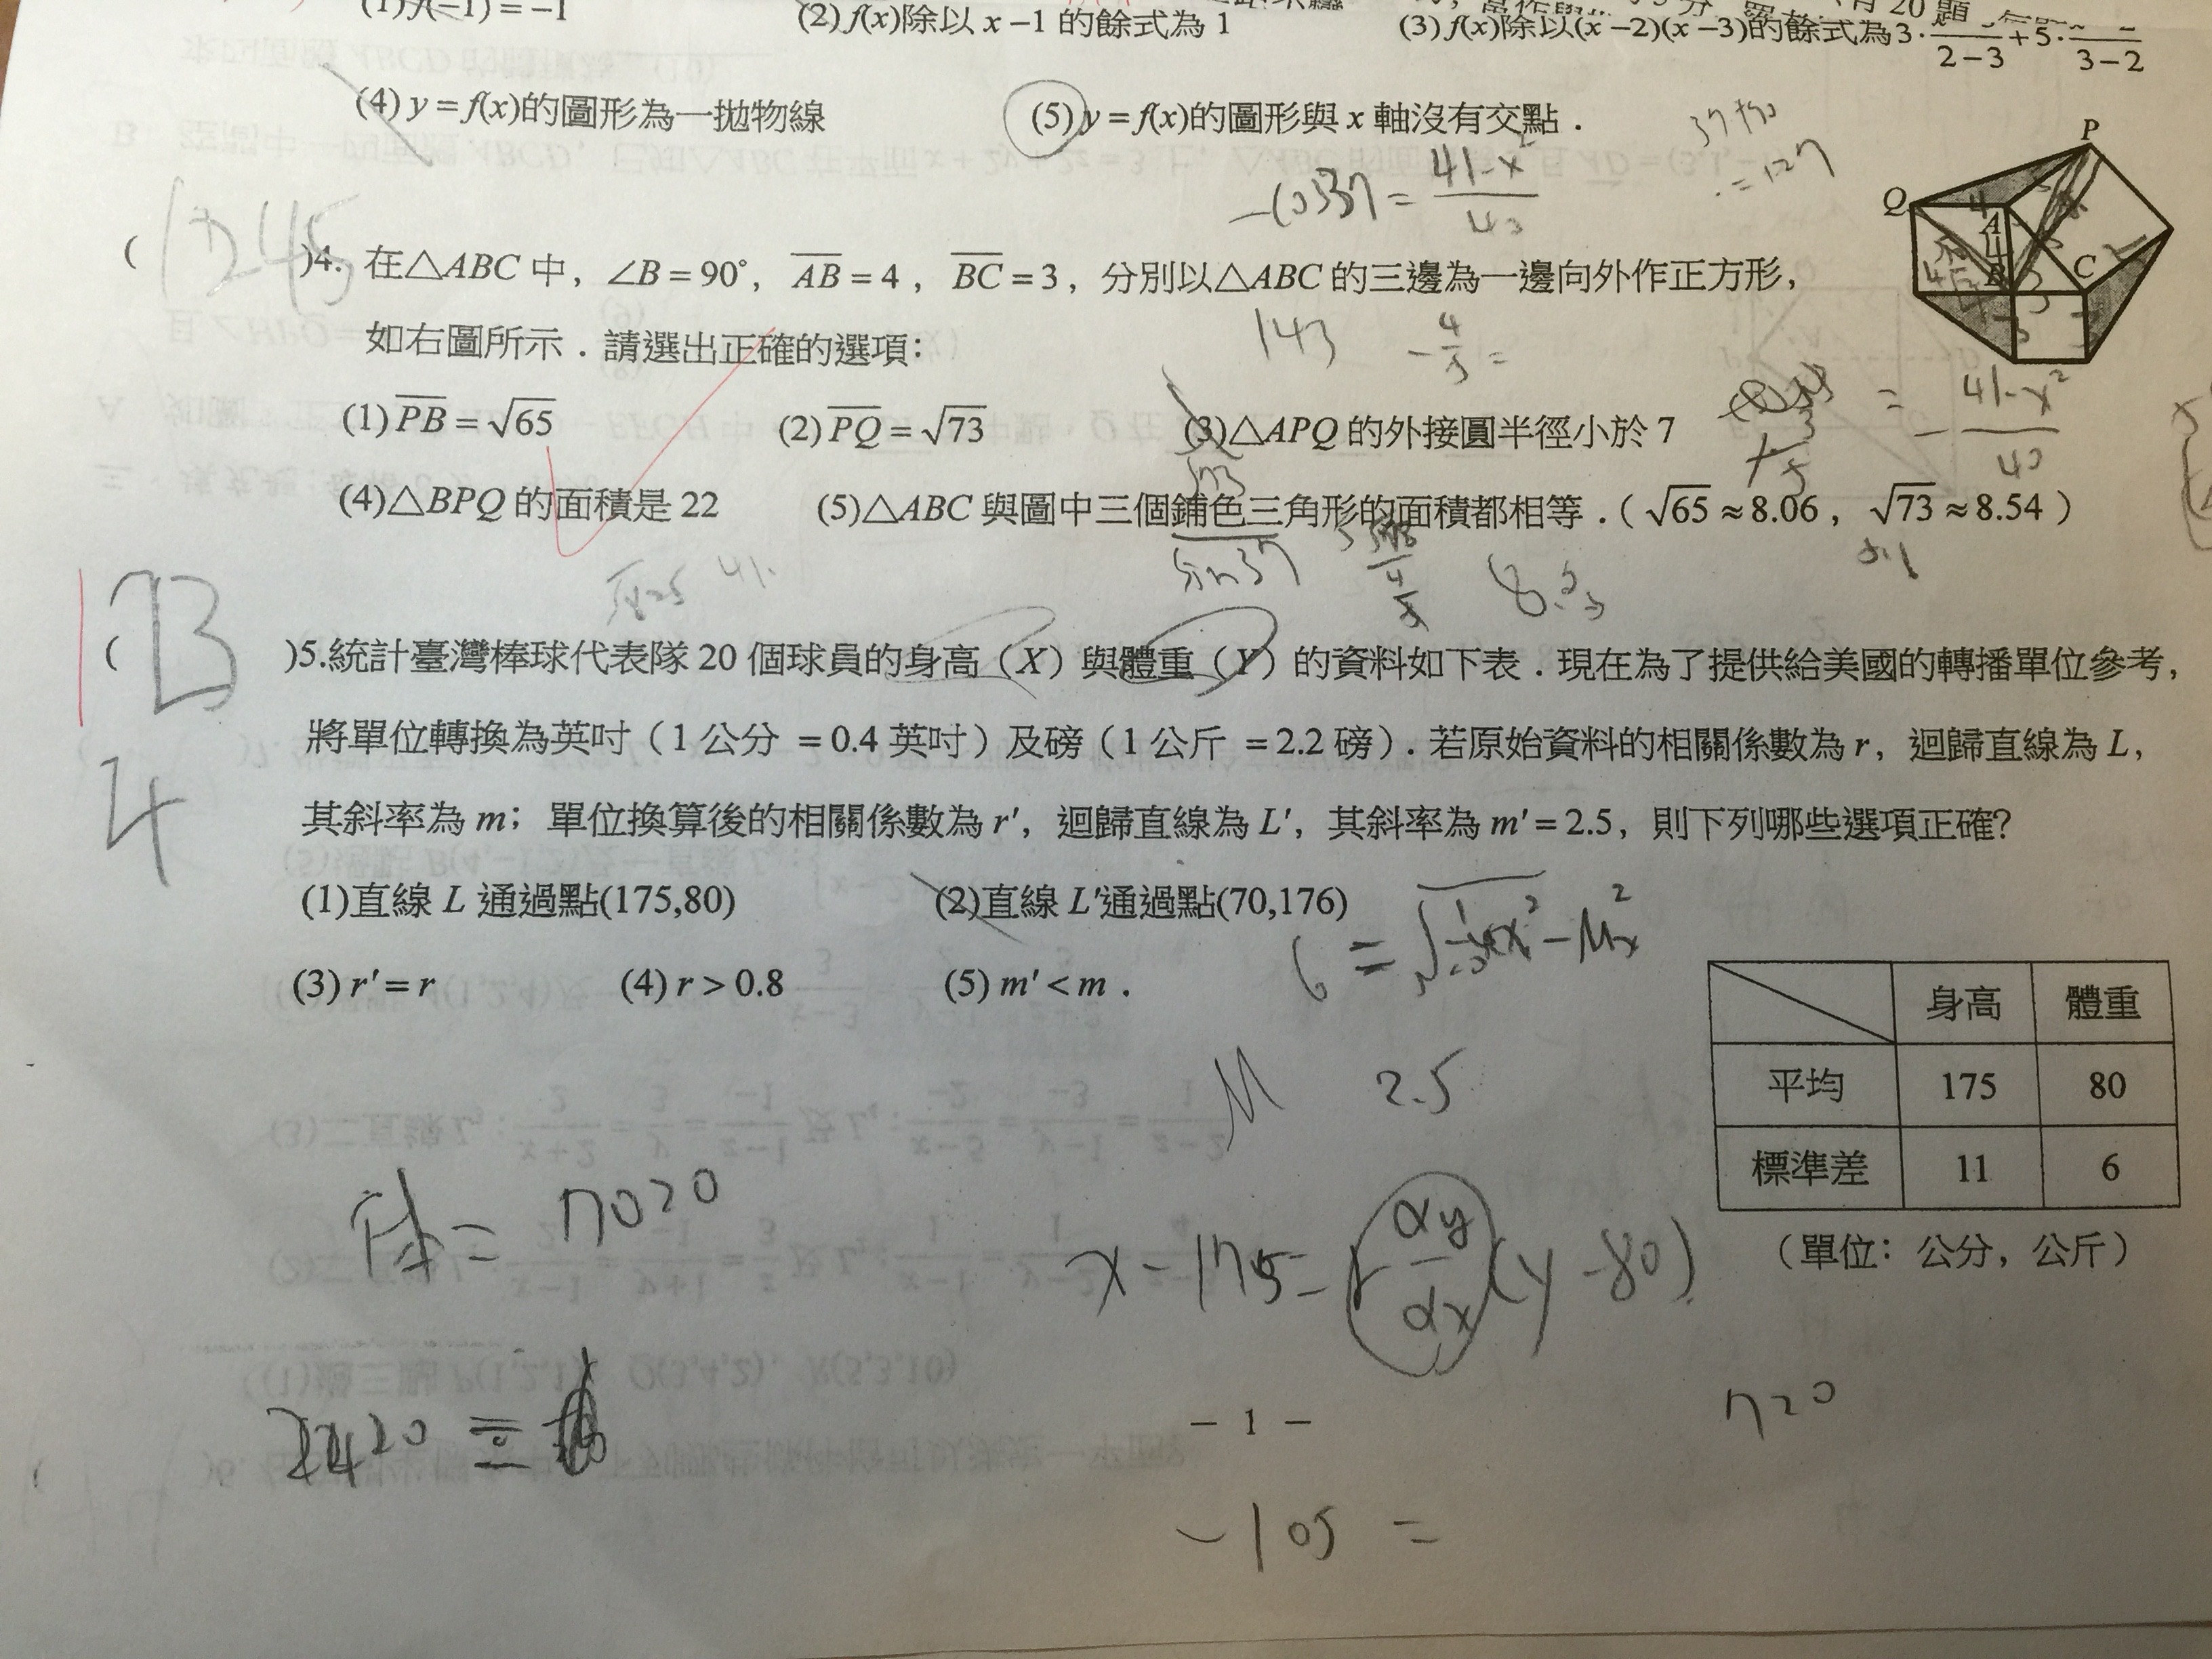 (1) f(−1) = −1
(2) f(x)除以 x −1 的餘式為 1
(3) f(x)除以(x −2)(x −3)的餘式為3·
2−3
+5·
3−2
(4) y = f(x)的圖形為一拋物線
(5) y = f(x)的圖形與 x 軸沒有交點．
= 127
= 41-x²
P
Q
A
B
C
1245
( )4. 在△ABC 中，∠B = 90°，AB = 4，BC = 3，分別以△ABC 的三邊為一邊向外作正方形，
如右圖所示．請選出正確的選項：
143
= 41-x²
(1) PB = √65
(2) PQ = √73
(3)△APQ 的外接圓半徑小於 7
(4)△BPQ 的面積是 22
(5)△ABC 與圖中三個鋪色三角形的面積都相等．( √65 ≈ 8.06， √73 ≈ 8.54 )
sin37
13
4
( )5.統計臺灣棒球代表隊 20 個球員的身高（X）與體重（Y）的資料如下表．現在為了提供給美國的轉播單位參考，
將單位轉換為英吋（1 公分 = 0.4 英吋）及磅（1 公斤 = 2.2 磅）．若原始資料的相關係數為 r，迴歸直線為 L，
其斜率為 m；單位換算後的相關係數為 r′，迴歸直線為 L′，其斜率為 m′ = 2.5，則下列哪些選項正確？
(1)直線 L 通過點(175,80)
(2)直線 L′通過點(70,176)
(3) r′ = r
(4) r > 0.8
(5) m′ < m．
身高 體重
平均 175 80
標準差 11 6
（單位：公分，公斤）
M 2.5
= 7020
x - 175 = r αy/αx (y - 80)
720
− 1 −
-105 =